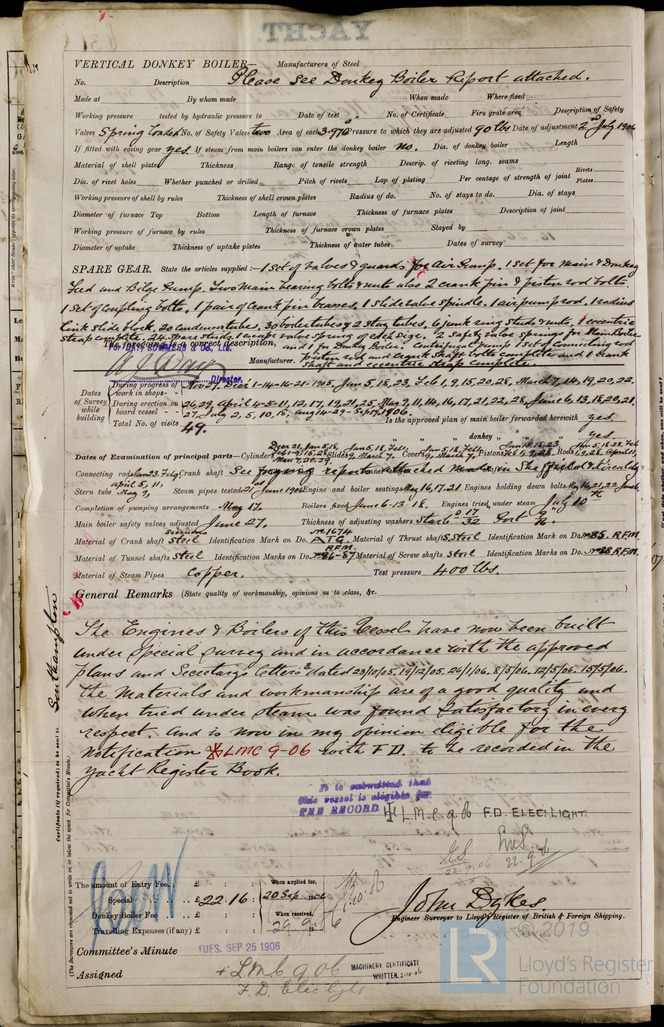 YACHT.
VERTICAL DONKEY BOILER— Manufacturers of Steel
No. Description Please see Donkey Boiler Report attached.
Made at By whom made When made Where fixed
Working pressure tested by hydraulic pressure to Date of test No. of Certificate Fire grate area Description of Safety
Valves Spring loaded No. of Safety Valves two Area of each 3.976 Pressure to which they are adjusted 90 lbs Date of adjustment 2nd July 1906
If fitted with easing gear yes. If steam from main boilers can enter the donkey boiler no. Dia. of donkey boiler Length
Material of shell plates Thickness Range of tensile strength Descrip. of riveting long. seams
Dia. of rivet holes Whether punched or drilled Pitch of rivets Lap of plating Per centage of strength of joint Rivets Plates
Working pressure of shell by rules Thickness of shell crown plates Radius of do. No. of stays to do. Dia. of stays
Diameter of furnace Top Bottom Length of furnace Thickness of furnace plates Description of joint
Working pressure of furnace by rules Thickness of furnace crown plates Stayed by
Diameter of uptake Thickness of uptake plates Thickness of water tubes Dates of survey
SPARE GEAR. State the articles supplied:— 1 set of valves & guards for Air Pump. 1 set for Main & Donkey
Feed and Bilge Pump. Two main bearing bolts & nuts also 2 crank pin & piston rod bolts.
1 set of coupling bolts, 1 pair of crank pin brasses, 1 slide valve spindle. 1 air pump rod. 1 radius
link slide block, 20 condenser tubes, 30 boiler tubes & 2 stay tubes, 6 junk ring studs & nuts, 1 eccentric
strap complete
The foregoing is a correct description,
For DAY, SUMMERS & Co. Ltd.
Director.
Manufacturer. piston rod and crank shaft bolts complete and 1 crank
shaft and eccentric strap complete.
Dates of Survey while building
During progress of work in shops - - Nov 27, Dec 1-14-16-21-1905, Jan 5, 18, 23, Feb 1, 9, 15, 20, 28, March 7, 14, 19, 20, 22,
During erection on board vessel - - 26, 29, April 4-5-11, 12, 17, 19, 21, 25, May 7, 11, 14, 16, 17, 21, 22, 28, June 6, 13, 18, 20, 21,
27, July 2, 5, 10, 15, Aug 14-29-Sept 17, 1906.
Total No. of visits 49.
Is the approved plan of main boiler forwarded herewith yes
" " " donkey " " " yes
Dates of Examination of principal parts—Cylinders Slides Covers Pistons Rods
Connecting rods Jan 23. Feb 9 Crank shaft See forging report attached Made in Sheffield
April 5, 11,
Stern tube May 9, Steam pipes tested 21st June 1906 Engine and boiler seatings May 16, 17, 21 Engines holding down bolts May 16, 21, 22, June 6,
Completion of pumping arrangements May 17. Boilers fixed June 6-13-18. Engines tried under steam July 10th
Main boiler safety valves adjusted June 27. Thickness of adjusting washers
Material of Crank shaft steel Identification Mark on Do. No 1674 A.T.G. Material of Thrust shaft S. Steel Identification Mark on Do. No 85. R.F.M.
Material of Tunnel shafts Steel Identification Marks on Do. No 86-87 R.F.M. Material of Screw shafts Steel Identification Marks on Do. No 88 R.F.M.
Material of Steam Pipes Copper. Test pressure 400 lbs.
General Remarks (State quality of workmanship, opinions as to class, &c.
The Engines & Boilers of this Vessel have now been built
under special survey and in accordance with the approved
plans and Secretary's letters dated 23/10/05, 19/12/05, 26/1/06, 8/5/06, 12/5/06. 15/5/06.
The Materials and workmanship are of a good quality and
when tried under steam was found satisfactory in every
respect. and is now in my opinion eligible for the
notification LMC 9-06 with F.D. to be recorded in the
Yacht Register Book.
It is submitted that
this vessel is eligible for
THE RECORD + L.M.C. 9.06 F.D. ELEC. LIGHT.
22.9.06
22.9.06
The amount of Entry Fee.. £ : : When applied for,
Special .. £ 22.16 : 20 Sep 1906
Donkey Boiler Fee .. £ : : When received,
Travelling Expenses (if any) £ : : 29.9.06
John Dykes
Engineer Surveyor to Lloyd's Register of British & Foreign Shipping.
Committee's Minute TUES. SEP 25 1906
Assigned + L.M.C. 9.06
F.D. Elec light
MACHINERY CERTIFICATE
WRITTEN.
Southampton
Certificate (if required) to be sent to
(The Surveyors are requested not to write on or below the space for Committee's Minute.)
© 2019
LR
Lloyd's Register
Foundation